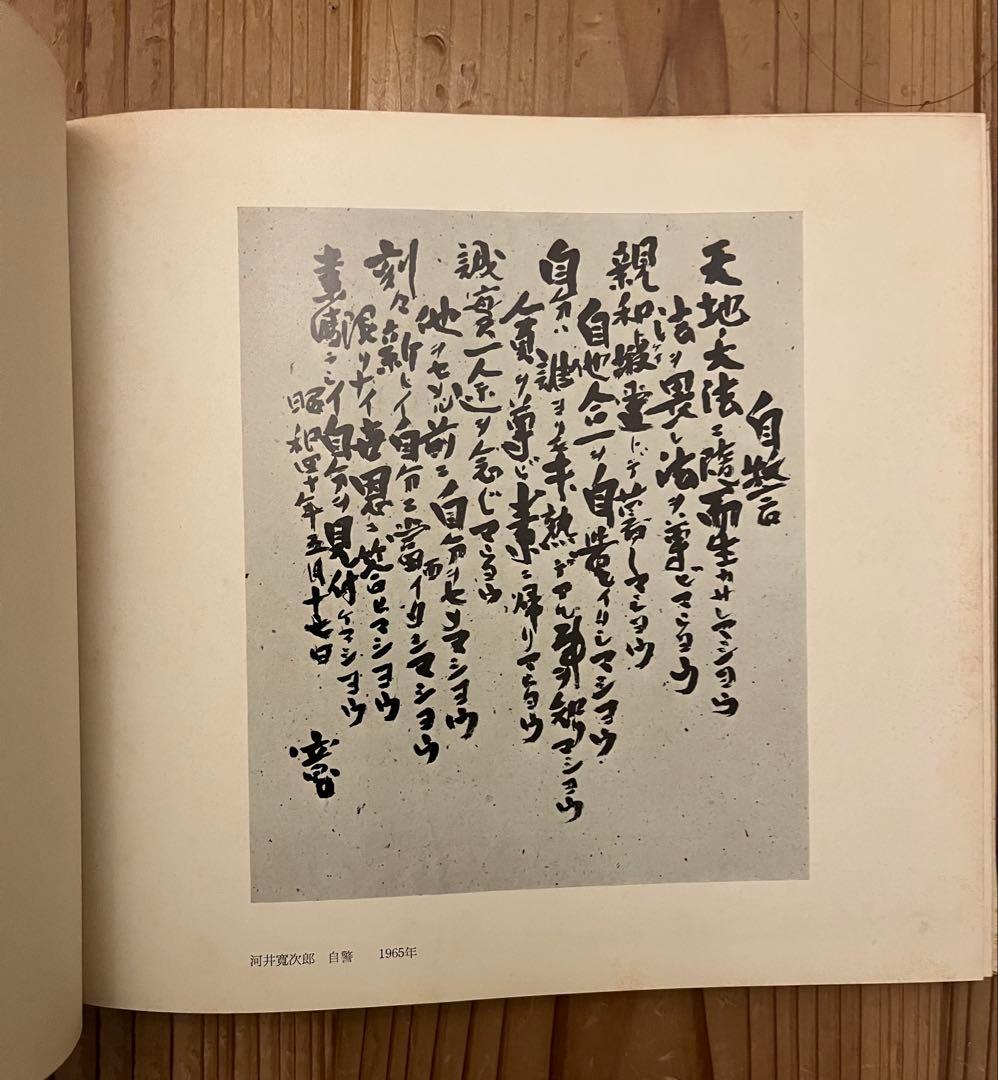 自警
天地ノ大法ニ随而生カサレマショウ
法ヲ畏レ法ヲ尊ビマショウ
親和 ニテ暮シマショウ
自他合一ヲ自覚イタシマショウ
自分ハ誰ヨリモ未熟デアル事ヲ知リマショウ
貧ヲ尊ビ素ニ帰リマショウ
誠實一途ヲ念ジマショウ
他ヲセメル前ニ自分ヲセメマショウ
刻々新シイ自分ニ当面イタシマショウ
限リナイ ニ マショウ
素晴ラシイ自分ヲ見付ケマショウ
昭和四十年五月十七日
寛
河井寬次郎 自警 1965年